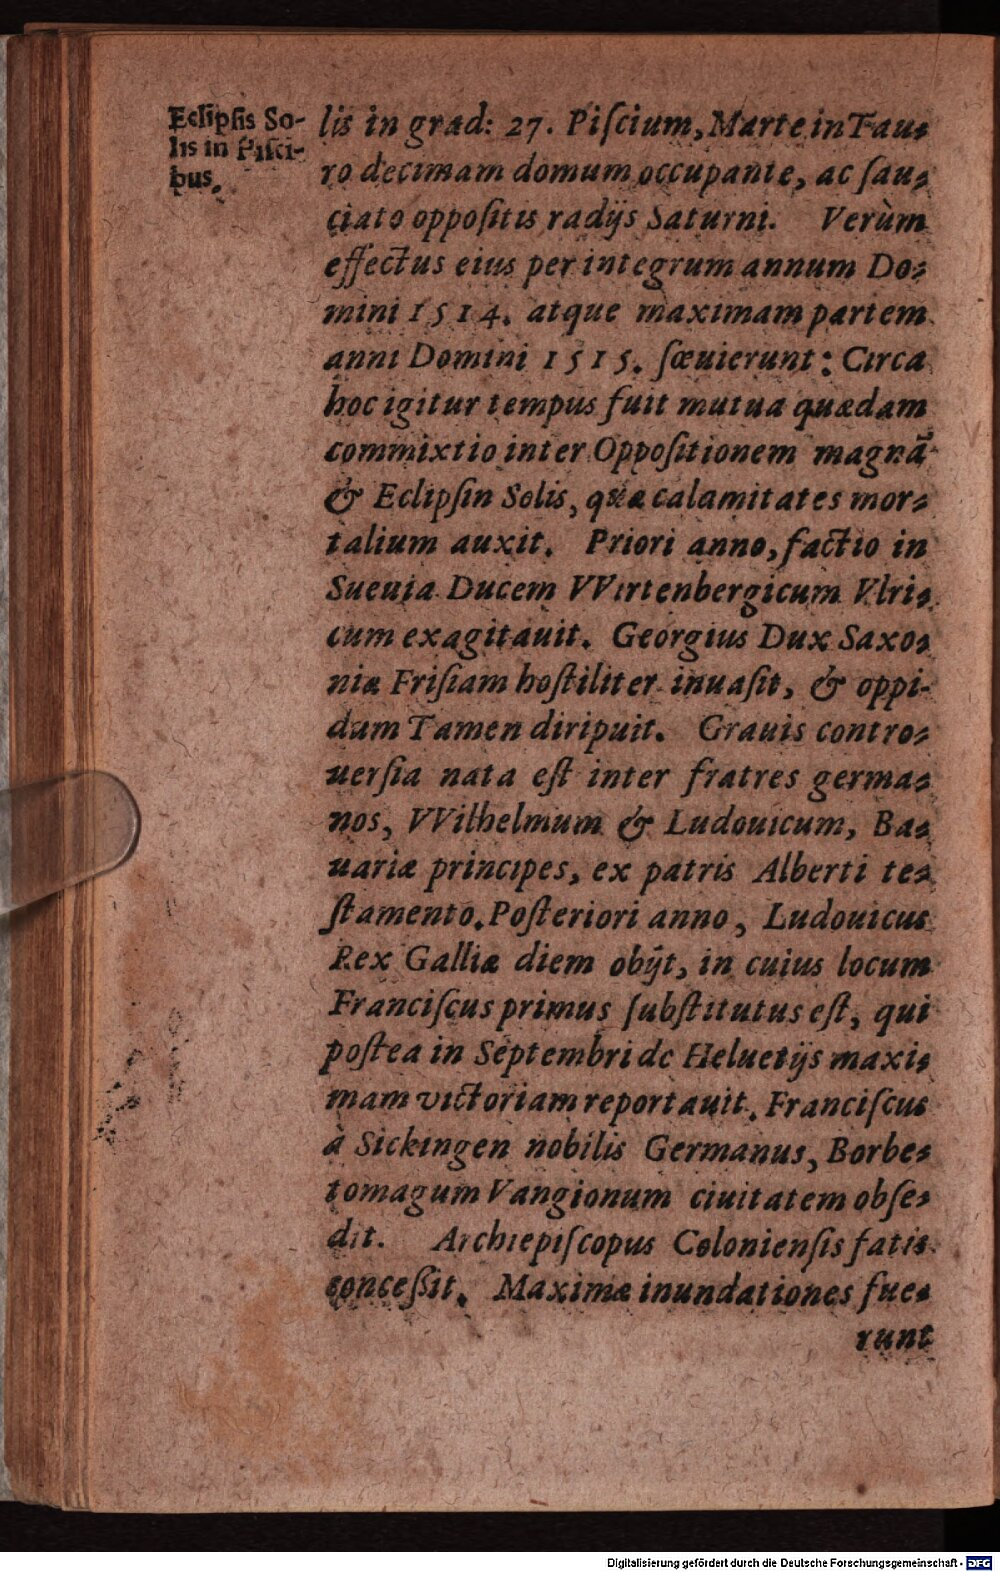 Eclipsis So-
lis in Pisci-
bus.
lis in grad: 27. Piſcium, Marte in Tau-
ro decimam domum occupante, ac ſau-
ciato oppoſitis radijs Saturni. Verùm
effectus eius per integrum annum Do-
mini 1514. atque maximam partem
anni Domini 1515. ſæuierunt: Circa
hoc igitur tempus fuit mutua quædam
commixtio inter Oppoſitionem magnã
& Eclipſin Solis, quæ calamitates mor-
talium auxit. Priori anno, factio in
Sueuia Ducem VVirtenbergicum Vlri-
cum exagitauit. Georgius Dux Saxo-
niæ Friſiam hoſtiliter inuaſit, & oppi-
dum Tamen diripuit. Grauis contro-
uerſia nata eſt inter fratres germa-
nos, VVilhelmum & Ludouicum, Ba-
uariæ principes, ex patris Alberti te-
ſtamento. Poſteriori anno, Ludouicus
Rex Galliæ diem obijt, in cuius locum
Franciſcus primus ſubſtitutus eſt, qui
poſtea in Septembri de Heluetijs maxi-
mam victoriam reportauit. Franciſcus
à Sickingen nobilis Germanus, Borbe-
tomagum Vangionum ciuitatem obſe-
dit. Archiepiſcopus Colonienſis fatis
conceßit. Maximæ inundationes fue-
runt
Digitalisierung gefördert durch die Deutsche Forschungsgemeinschaft - DFG